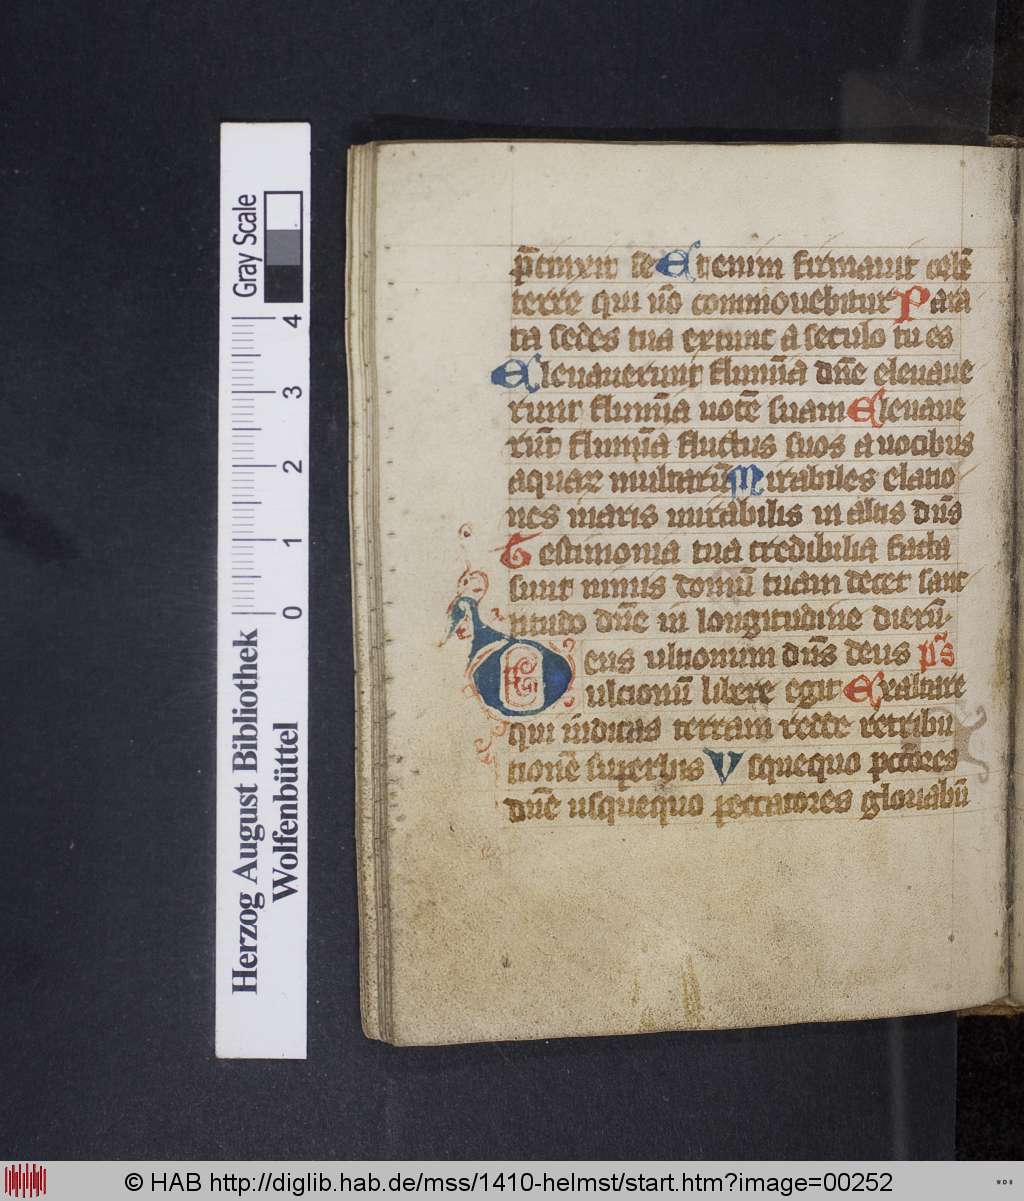 Gray Scale
4
3
2
1
0
Herzog August Bibliothek
Wolfenbüttel
p̄cinxit se Etenim firmauit orbē
terre qui nō commouebitur Para
ta sedes tua extunc a seculo tu es
Eleuauerunt flumīa dn̄e eleuaue
runt flumīa uocē suam Eleuaue
rūt flumīa fluctus suos a uocibus
aquar multarū Mirabiles elatio
nes maris mirabilis in altis dn̄s
Testimonia tua credibilia facta
sunt nimis domū tuam decet sanc
titudo dn̄e in longitudine dierū
Deus ultionum dn̄s deus p̄s
ulcionū libere egit Exaltare
qui iudicas terram redde retribu
tionē superbis Vsquequo pctōres
dn̄e usquequo peccatores gloriabū
© HAB http://diglib.hab.de/mss/1410-helmst/start.htm?image=00252